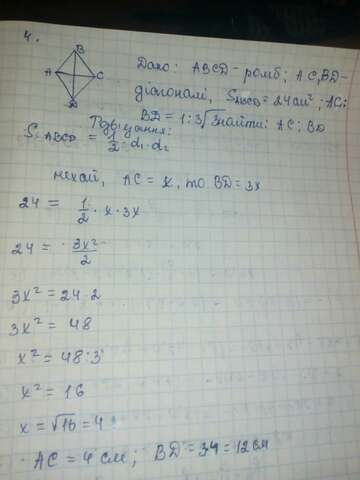 4.
B
A
C
D
Дано: ABCD - ромб; AC, BD -
діагоналі, S ABCD = 24 см²; AC:
BD = 1:3 Знайти: AC; BD
Розв'язання:
S ABCD = 1/2 · d₁ · d₂
нехай, AC = x, то BD = 3x
24 = 1/2 · x · 3x
24 = 3x²/2
3x² = 24 · 2
3x² = 48
x² = 48 : 3
x² = 16
x = √16 = 4
AC = 4 см; BD = 3·4 = 12 см